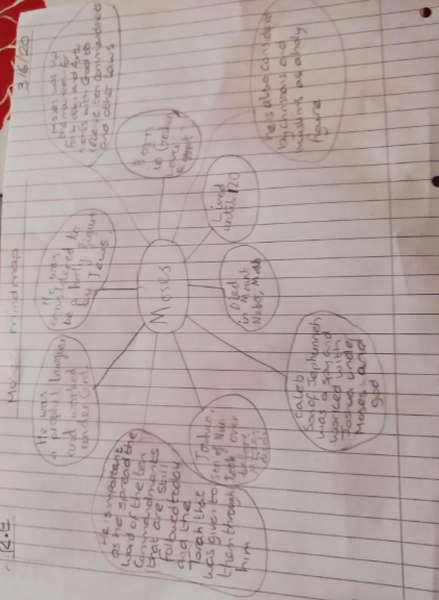 R.E
3/6/20
Moses mindmap
Moses
He was
a prophet, lawgiver
and worked
under God
He was
considered to
be a holy figure
by Jews
Moses was
and
receive ten commandments
and other laws
Born
in Goshen
lower
Egypt
He is also considered
by christians and
muslims as a holy
figure
Lived
until 120
Died
in Mount
Nebo, Moab
Caleb
Son of Jephunneh
was a spy and
worked with
Joshua under
Moses and
God
Joshua,
son of Nun
took over
death
He is important
as he spread the
word of the ten
commandments
that are still
followed today
and the
Torah that
was given to
them through
him